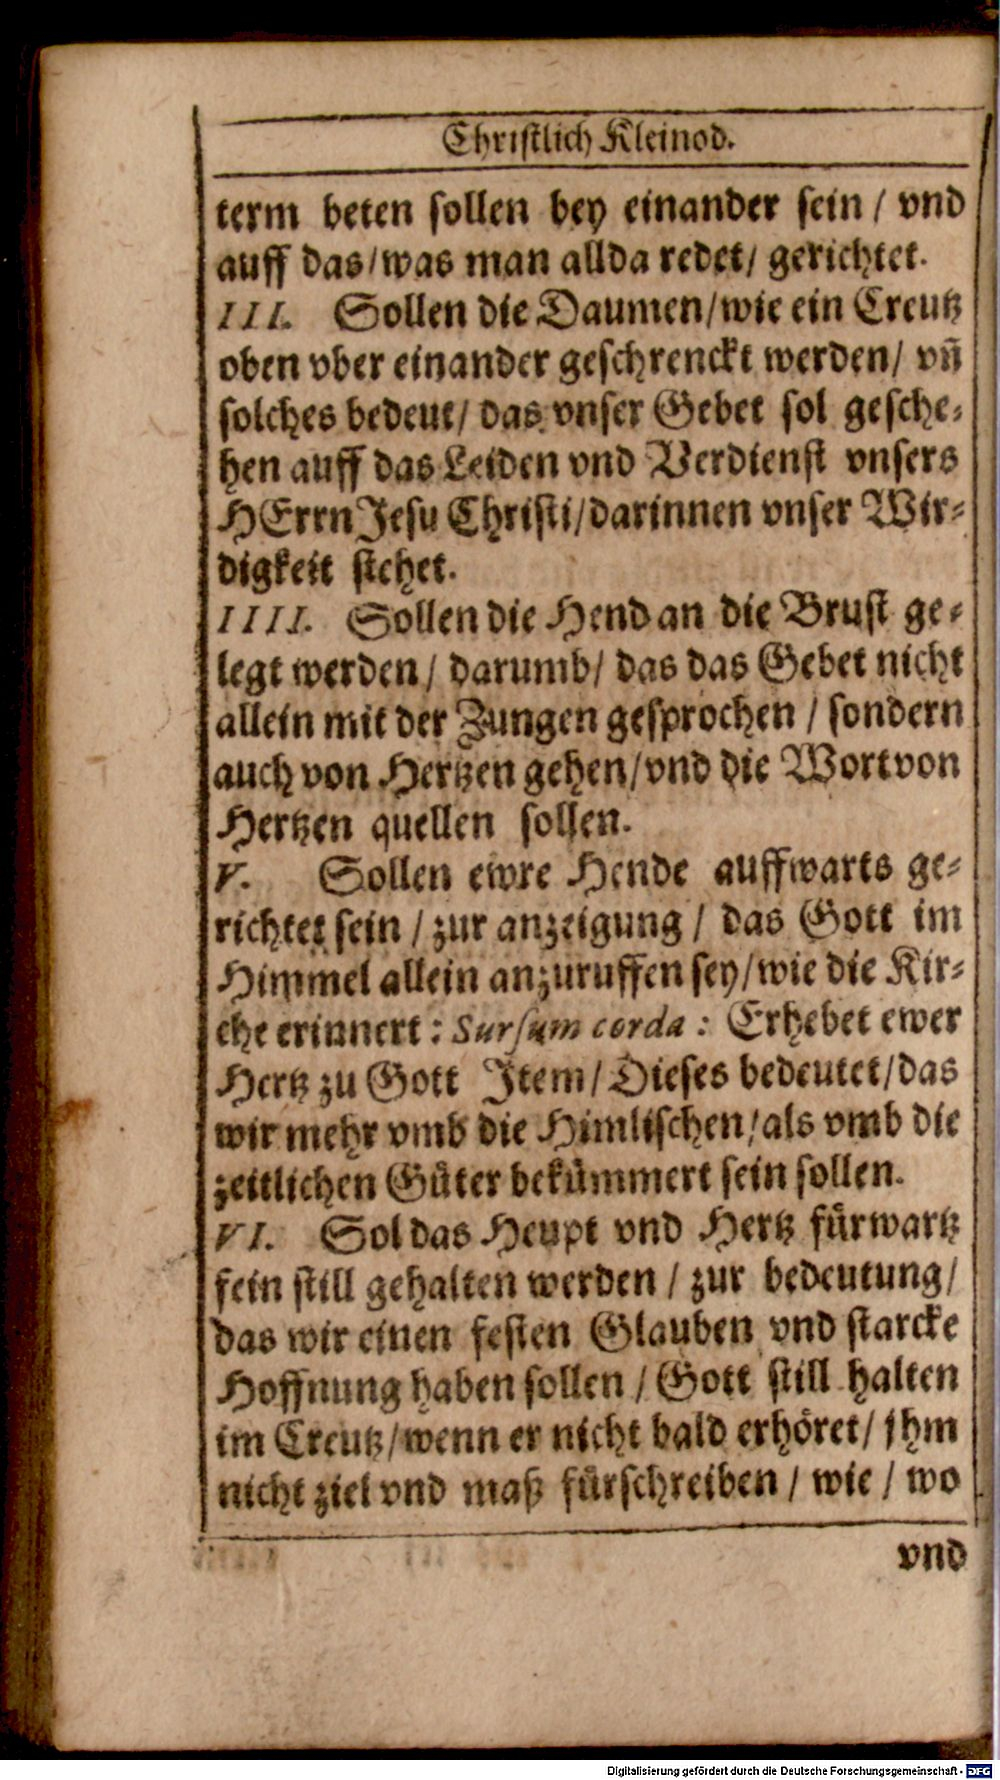 Christlich Kleinod.
term beten sollen bey einander sein / vnd
auff das / was man allda redet / gerichtet.
III. Sollen die Daumen / wie ein Creutz
oben vber einander geschrenckt werden / vñ
solches bedeut / das vnser Gebet sol gesche-
hen auff das Leiden vnd Verdienst vnsers
HErrn Jesu Christi / darinnen vnser Wir-
digkeit stehet.
IIII. Sollen die Hend an die Brust ge-
legt werden / darumb / das das Gebet nicht
allein mit der Zungen gesprochen / sondern
auch von Hertzen gehen / vnd die Wort von
Hertzen quellen sollen.
V. Sollen ewre Hende auffwarts ge-
richtet sein / zur anzeigung / das Gott im
Himmel allein anzuruffen sey / wie die Kir-
che erinnert : Sursum corda : Erhebet ewer
Hertz zu Gott Item / Dieses bedeutet / das
wir mehr vmb die Himlischen / als vmb die
zeitlichen Güter bekümmert sein sollen.
VI. Sol das Heupt vnd Hertz fürwartz
fein still gehalten werden / zur bedeutung /
das wir einen festen Glauben vnd starcke
Hoffnung haben sollen / Gott still halten
im Creutz / wenn er nicht bald erhöret / jhm
nicht ziel vnd maß fürschreiben / wie / wo
vnd
Digitalisierung gefördert durch die Deutsche Forschungsgemeinschaft - DFG